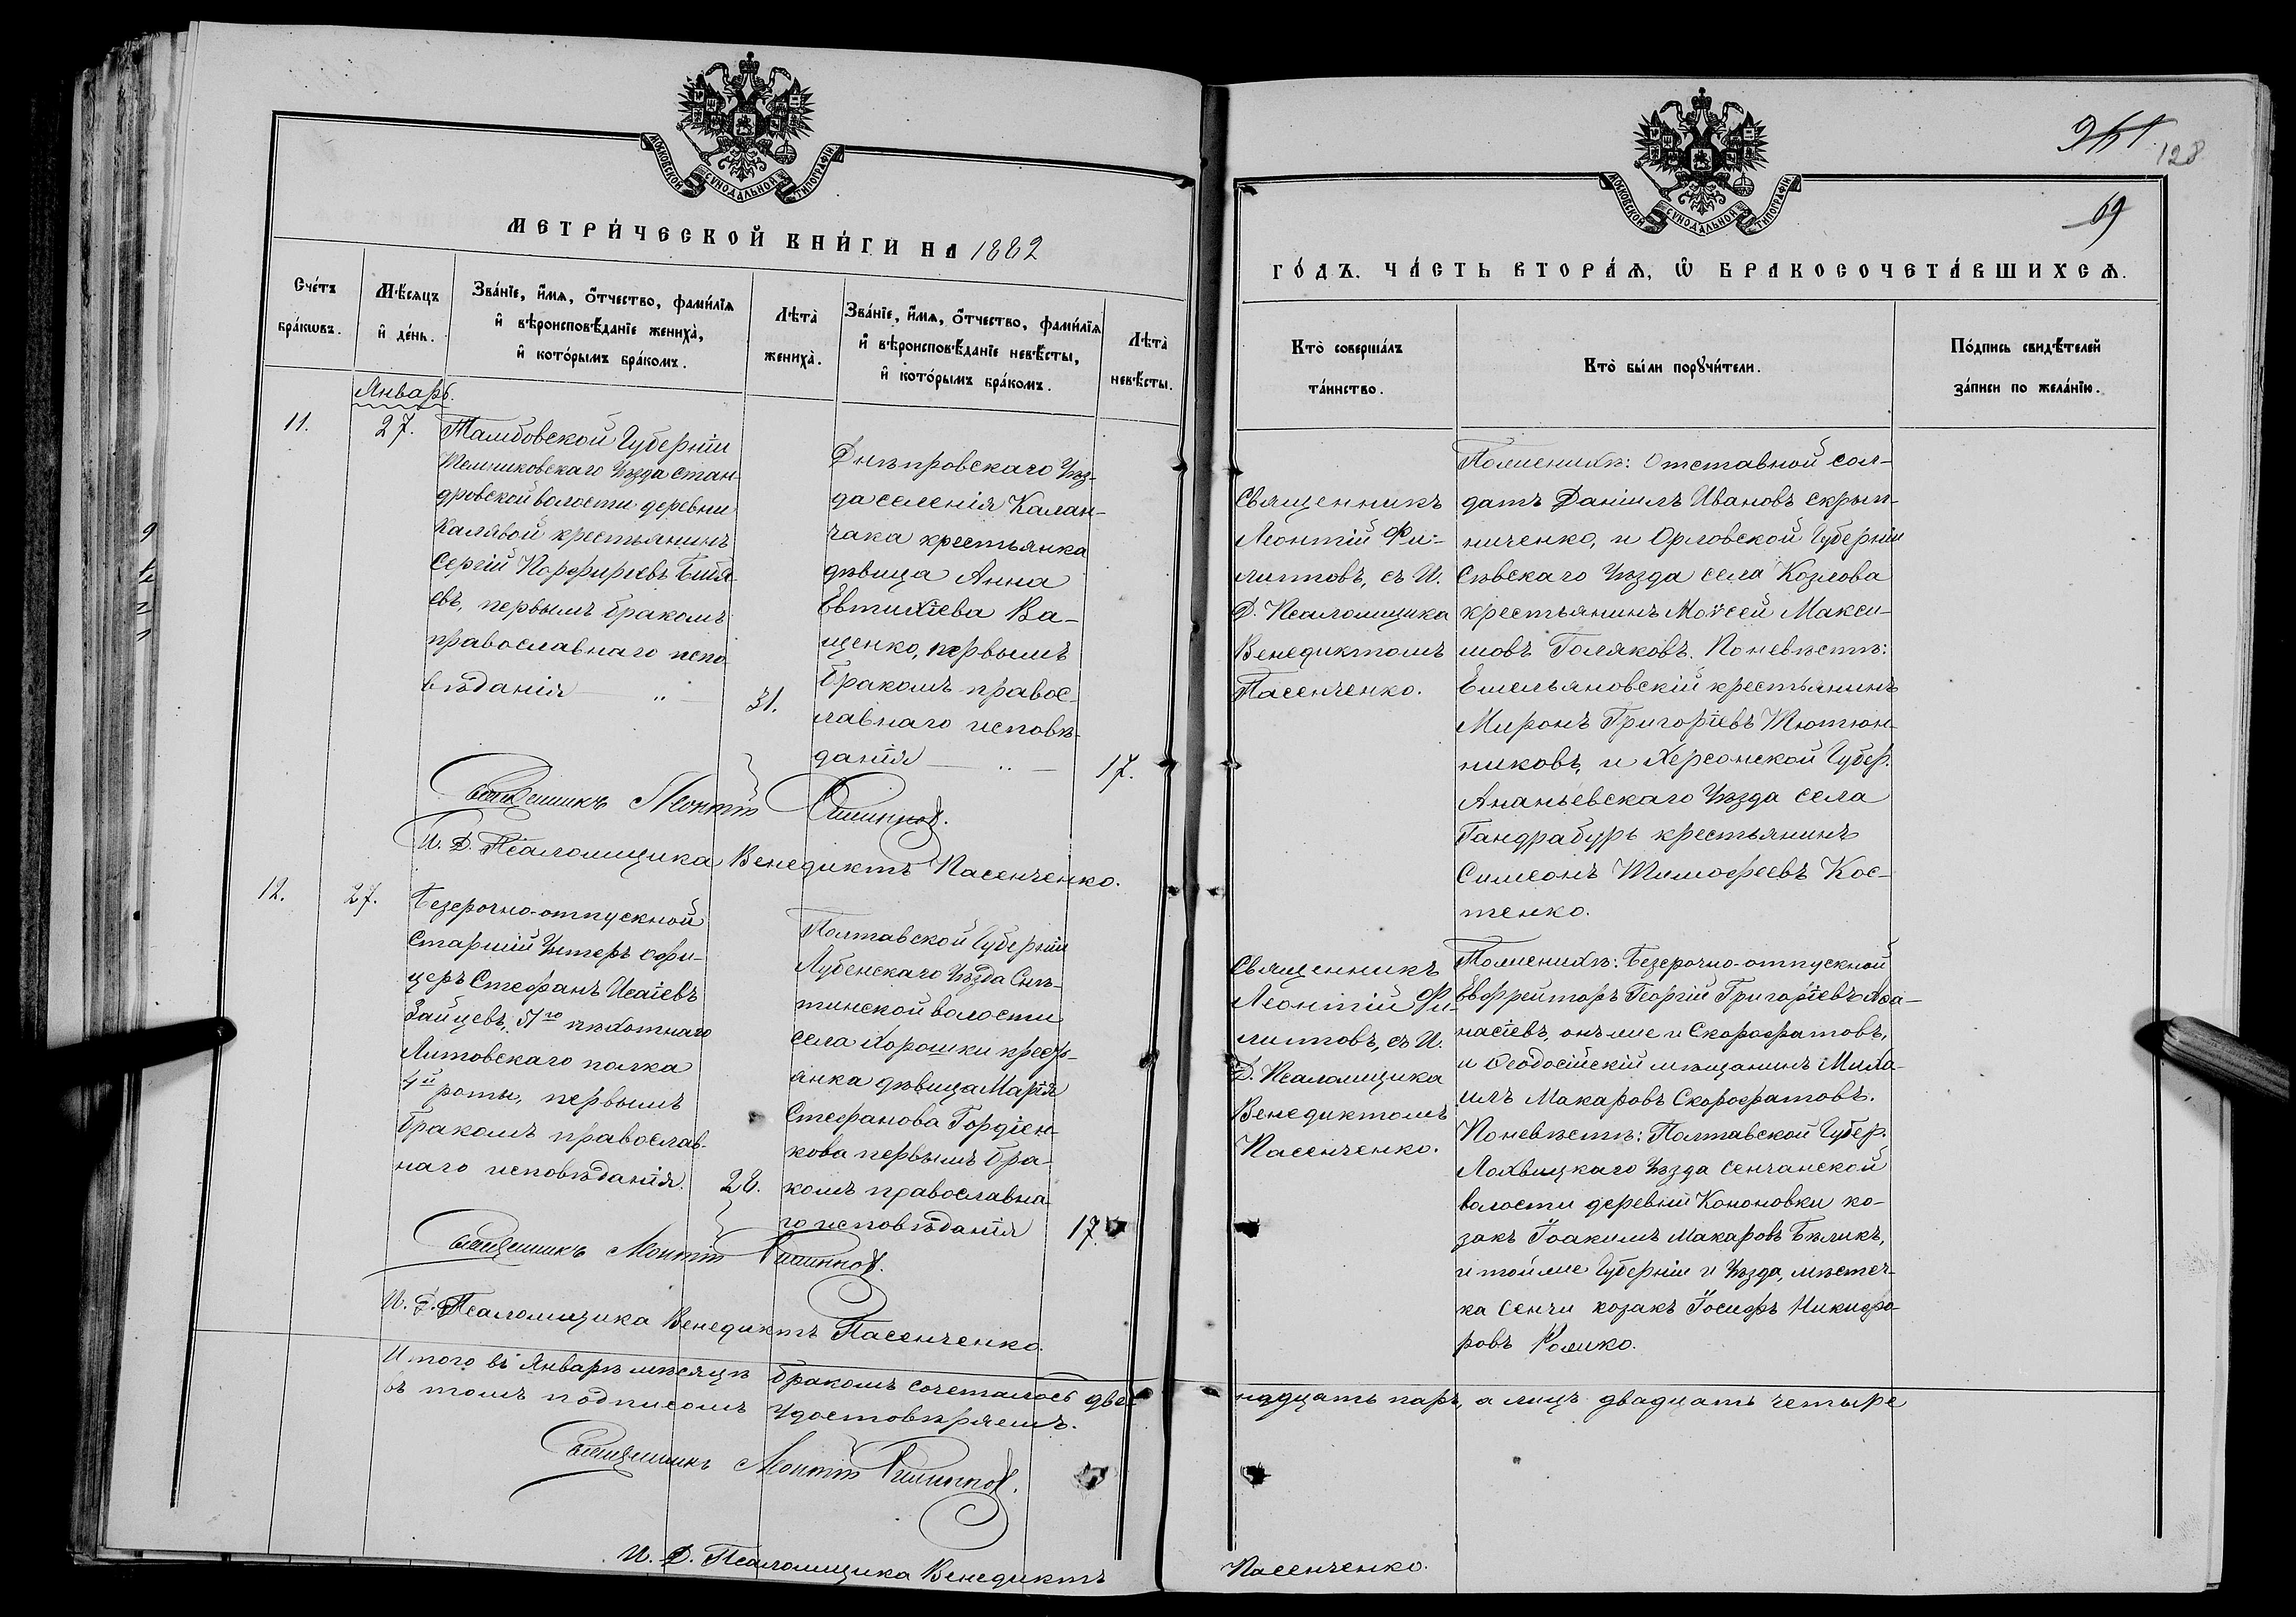 МОСКОВСКОЙ СѴНОДАЛЬНОЙ ТИПОГРАФІИ
МЕТРИ́ЧЕСКОЙ КНИ́ГИ НА 1882
Сче́тъ бра́ковъ.
Мѣ́сяцъ и де́нь.
Зва́ніе, и́мя, о́тчество, фами́лія и вѣроисповѣ́даніе жениха̀, и кото́рымъ бра́комъ.
Лѣта̀ жениха̀.
Зва́ніе, и́мя, о́тчество, фами́лія и вѣроисповѣ́даніе невѣ́сты, и кото́рымъ бра́комъ.
Лѣта̀ невѣ́сты.
Январь.
11.
27.
Тамбовской Губерніи
Темниковскаго Уѣзда Стан-
дровской волости деревни
крестьянинъ
Сергій Порфиріевъ
евъ, первымъ бракомъ
православнаго испо-
вѣданія
31.
Днѣпровскаго Уѣз-
да селенія Калан-
чака крестьянка
дѣвица Анна
Евтихіева Ва-
щенко, первымъ
бракомъ правос-
лавнаго исповѣ-
данія
17.
Священникъ Леонтій Филипповъ.
И. Д. Псаломщика Венедиктъ Пасенченко.
12.
27.
Безсрочно-отпускной
Старшій Унтеръ офи-
церъ Стефанъ Исаіевъ
Зайцевъ, 51го пѣхотнаго
Литовскаго полка
4й роты, первымъ
бракомъ православ-
наго исповѣданія.
28.
Полтавской Губерніи
Лубенскаго Уѣзда Снѣ-
тинской волости
села Хорошки крестья-
анка дѣвица Марія
Стефанова Гордіен-
кова первымъ бра-
комъ православна-
го исповѣданія
17.
Священникъ Леонтій Филипповъ.
И. Д. Псаломщика Венедиктъ Пасенченко.
Итого въ Январѣ мѣсяцѣ бракомъ сочеталось двѣ-
въ томъ подписомъ удостовѣряемъ.
Священникъ Леонтій Филипповъ.
И. Д. Псаломщика Венедиктъ
МОСКОВСКОЙ СѴНОДАЛЬНОЙ ТИПОГРАФІИ
128
69
ГО́ДЪ. ЧА́СТЬ ВТОРА́Я, Ѡ БРАКОСОЧЕТА́ВШИХСЯ.
Кто̀ соверша́лъ та́инство.
Кто̀ бы́ли порꙋчи́тели.
По́дпись свидѣ́телей за́писи по жела́нію.
Священникъ
Леонтій Фи-
липповъ, съ И.
Д. Псаломщика
Венедиктомъ
Пасенченко.
По женихѣ: Отставной сол-
датъ Даніилъ Ивановъ Скрып-
ниченко, и Орловской Губерніи
Сѣвскаго Уѣзда села Козлова
крестьянинъ Моѵсей Макси-
мовъ Голяковъ. По невѣстѣ:
Емельяновскій крестьянинъ
Миронъ Григоріевъ Тютюн-
никовъ, и Херсонской Губер.
Ананьевскаго Уѣзда села
Гандрабуръ крестьянинъ
Симеонъ Тимофеевъ Кос-
тенко.
Священникъ
Леонтій Фи-
липповъ, съ И.
Д. Псаломщика
Венедиктомъ
Пасенченко.
По женихѣ: Безсрочно-отпускной
Ефрейторъ Георгій Григоріевъ Аѳа-
насіевъ, онъ же и Скорофатовъ,
и Ѳеодосійскій мѣщанинъ Миха-
илъ Макаровъ Скорофатовъ.
По невѣстѣ: Полтавской Губер.
Лохвицкаго Уѣзда Сенчанской
волости деревни Кононовки ко-
закъ Іоакимъ Макаровъ Бѣликъ,
и той же Губерніи и Уѣзда, мѣстеч-
ка Сенчи козакъ Іосифъ Никифо-
ровъ Ромко.
надцать паръ, а лицъ двадцать четыре
Пасенченко.